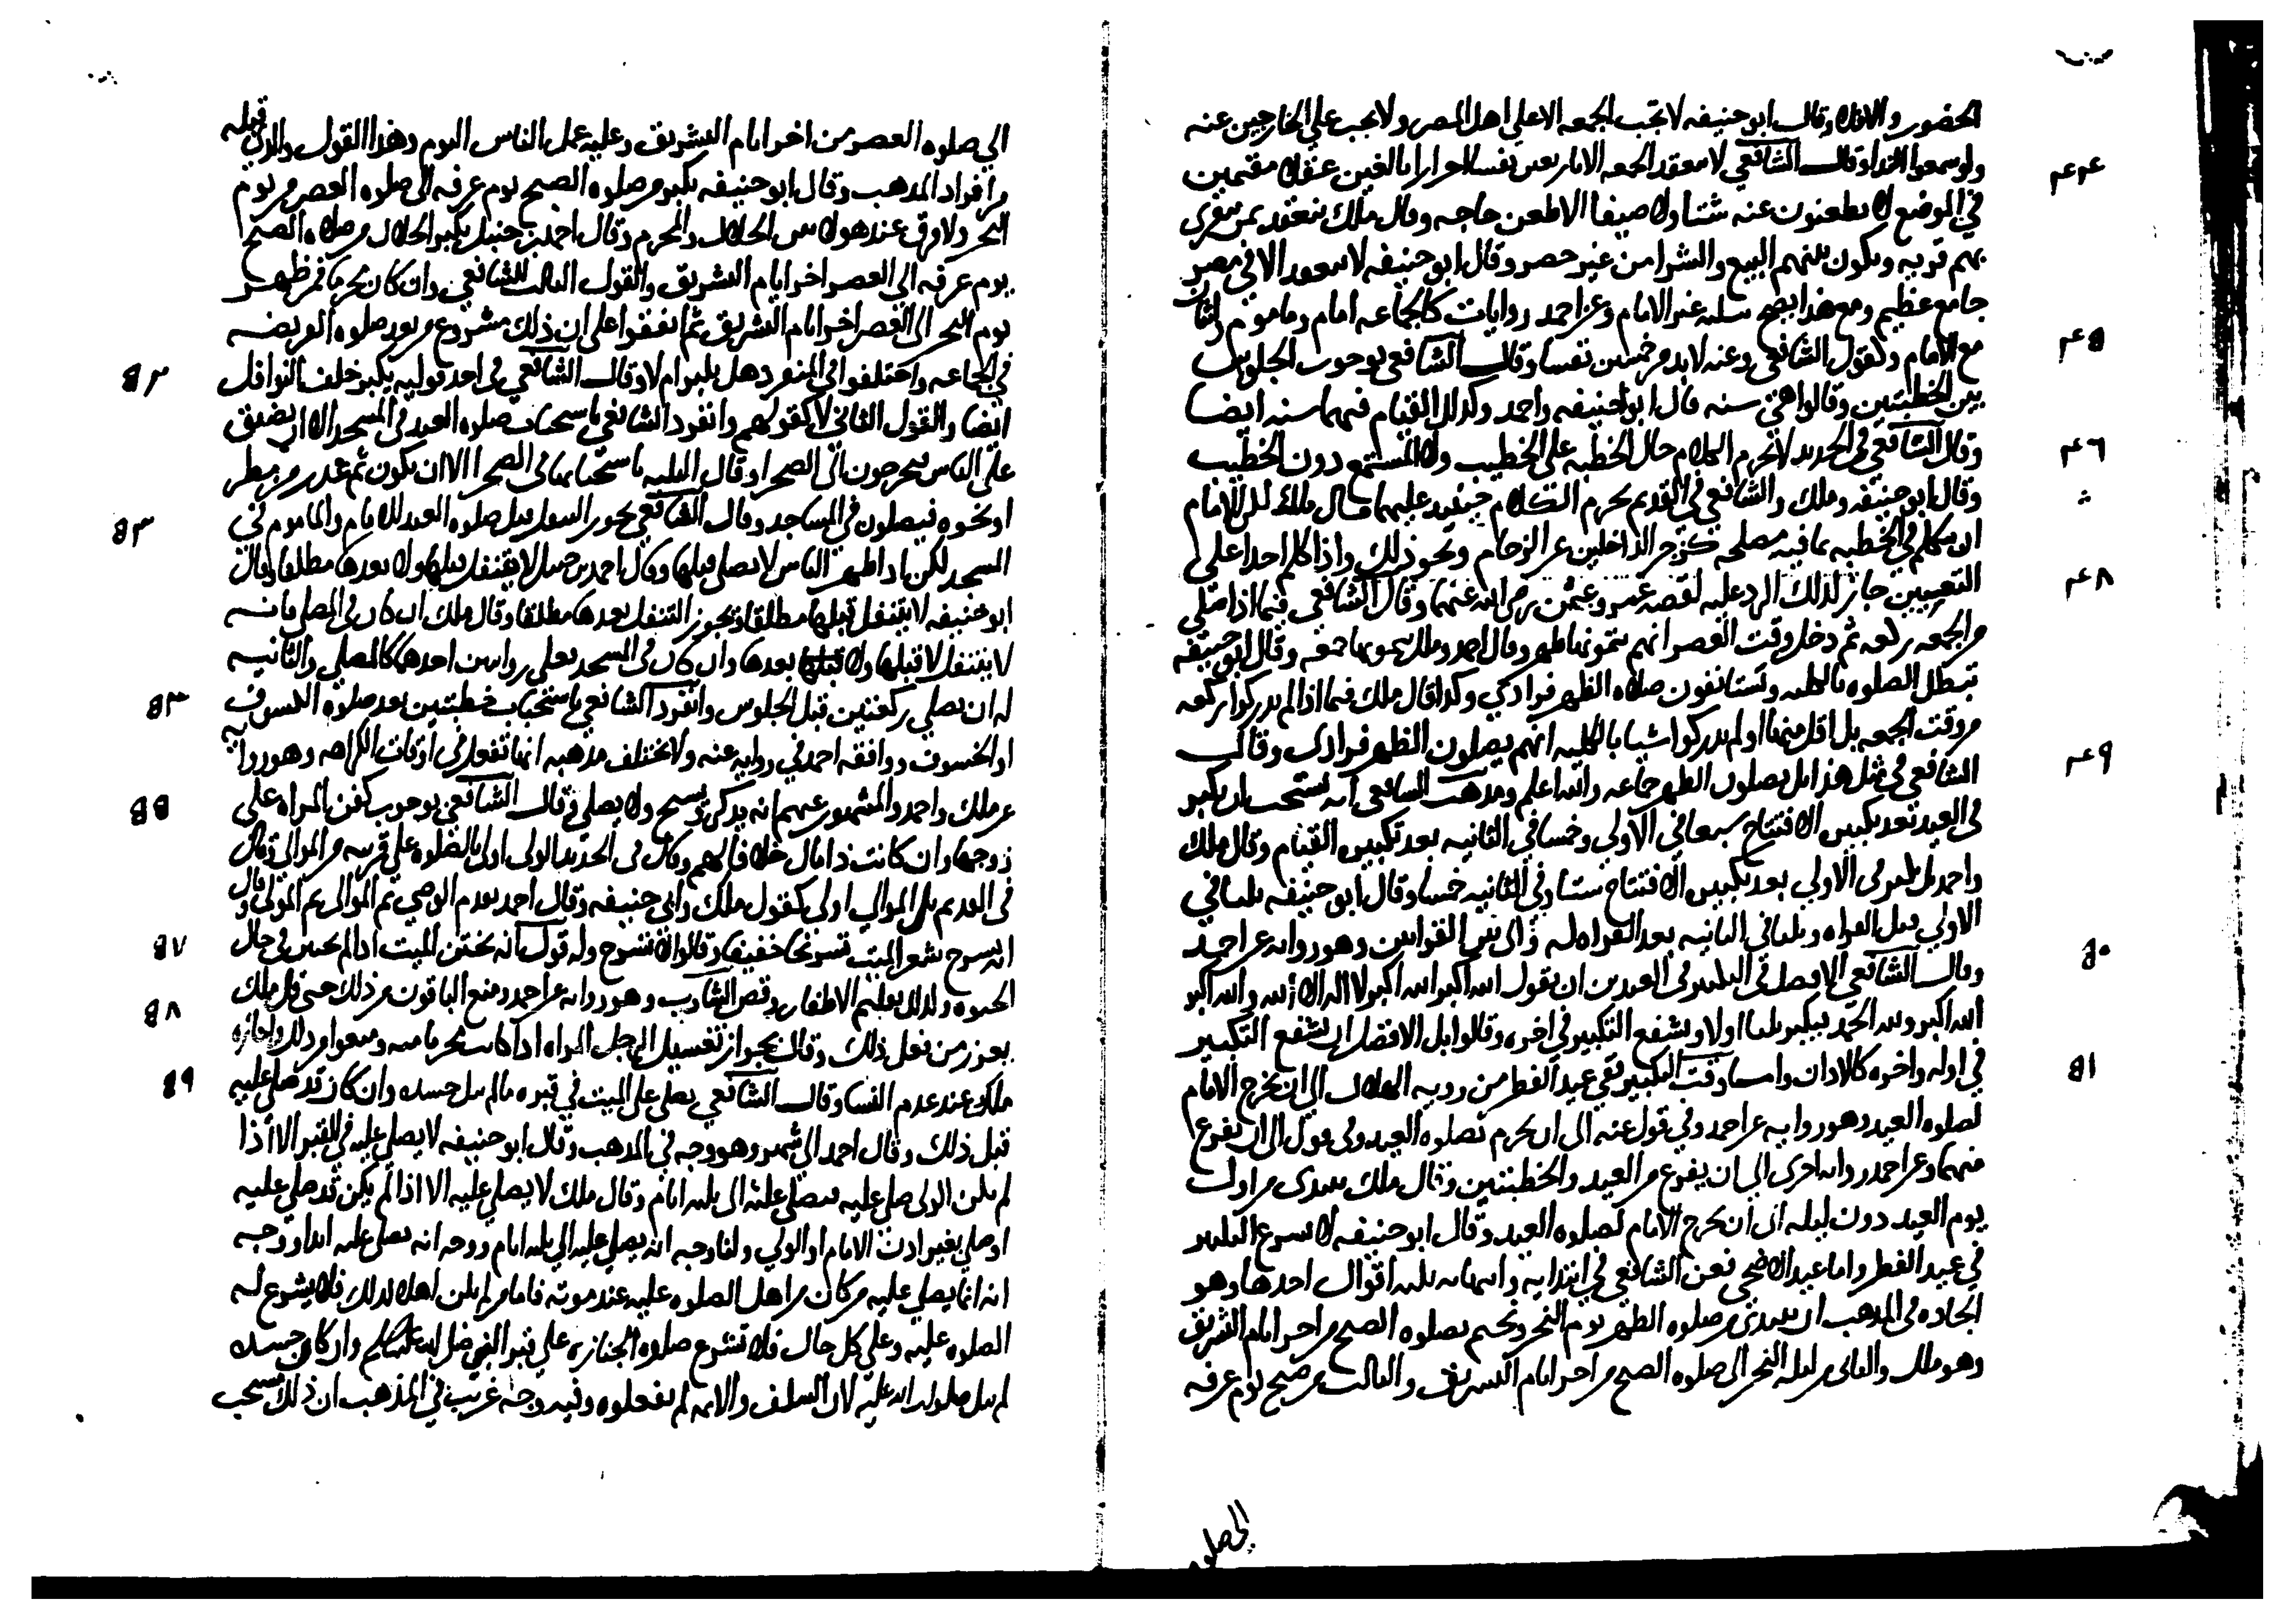 الحضور والافلا وقال ابو حنيفه لا تجب الجمعه الا على اهل المصر ولا يجب على الخارجين عنه
ولو سمعوا الندا وقال الشافعي لا سعقد الجمعه الا باربعين نفسا احرارا بالغين عقلا مقيمين
في الموضع لا يظعنون عنه شتا ولا صيفا الا ظعن حاجه وقال ملك تنعقد بمن تتقرى
بهم قريه ويكون بينهم البيع والشرا من غير حصر وقال ابو حنيفه لا سعقد الا في مصر
جامع عظيم ومع هذا يصح بثلثه غير الامام وعن احمد روايات كالجماعه امام وماموم واثنان
مع الامام وكقول الشافعي وعنه لابد من خمسين نفسا وقال الشافعي بوجوب الجلوس
بين الخطبتين وقالوا هي سنه قال ابو حنيفه واحمد وكذلك القيام فيهما سنه ايضا
وقال الشافعي في الجديد لا يحرم الكلام حال الخطبه على الخطيب ولا المستمع دون الخطيب
وقال ابو حنيفه وملك والشافعي في القديم يحرم الكلام حينيد عليهما وقال ملك لكن للامام
ان يتكلم في الخطبه بما فيه مصلحه كزجر الداخلين عن الزحام ونحو ذلك واذا كلم احدا على
التعيين جاز لذلك الرد عليه لقصه عمر وعثمن رضي الله عنهما وقال الشافعي فيما اذا صلى
من الجمعه ركعه ثم دخل وقت العصر انهم يتمونها ظهرا وقال احمد وملك يتمونها جمعه وقال ابو حنيفه
تبطل الصلوه بالكليه ويستانفون صلاه الظهر فرادى وكذا قال ملك فيما اذا لم يدركوا ركعه
من وقت الجمعه بل اقل منها او لم يدركوا شيا بالكليه انهم يصلون الظهر فرادى وقال
الشافعي في مثل هذا بل يصلون الظهر جماعه والله اعلم ومذهب الشافعي انه يستحب ان يكبر
في العيد بعد تكبيره الافتتاح سبعا في الاولى وخمسا في الثانيه بعد تكبيره القيام وقال ملك
واحمد بل يكبر في الاولى بعد تكبيره الافتتاح ستا وفي الثانيه خمسا وقال ابو حنيفه ثلثا في
الاولى قبل القراه وثلثا في الثانيه بعد القراه ليوالي بين القراتين وهو روايه عن احمد
وقال الشافعي الافضل في التكبير في العيدين ان يقول الله اكبر الله اكبر لا اله الا الله والله اكبر
الله اكبر ولله الحمد فيكبر ثلثا اولا ويشفع التكبير في اخره وقالوا بل الافضل ان يشفع التكبير
في اوله واخره كالاذان وابتدا وقت التكبير في عيد الفطر من رويه الهلال الى ان يخرج الامام
لصلوه العيد وهو روايه عن احمد وفي قول عنه الى ان يحرم بصلوه العيد وفي قول الى ان يفرغ
منها وعن احمد روايه اخرى الى ان يفرغ من العيد والخطبتين وقال ملك يبتدى من اول
يوم العيد دون ليله الى ان يخرج الامام لصلوه العيد وقال ابو حنيفه لا يشرع التكبير
في عيد الفطر واما عيد الاضحى فعن الشافعي في ابتدايه وانتهايه ثلثه اقوال احدها وهو
الجاده في المذهب ان يبتدى من صلوه الظهر يوم النحر ويختم بصلوه الصبح من اخر ايام التشريق
وهو ملك والثاني من ليله النحر الى صلوه الصبح من اخر ايام التشريق والثالث من صبح يوم عرفه
الى صلوه
٤٤
٤٥
٤٦
٤٨
٤٩
٥٠
٥١
الى صلوه العصر من اخر ايام التشريق وعليه عمل الناس اليوم وهذا القول والذي قبله
من افراد المذهب وقال ابو حنيفه يكبر من صلوه الصبح يوم عرفه الى صلوه العصر من يوم
النحر ولا فرق عند هولا بين الحلال والمحرم وقال احمد بن حنبل يكبر الحلال من صلاه الصبح
يوم عرفه الى العصر اخر ايام التشريق والقول الثالث للشافعي وان كان محرما فمن ظهر
يوم النحر الى العصر اخر ايام التشريق ثم اتفقوا على ان ذلك مشروع من بعد صلوه الفريضه
في الجماعه واختلفوا في المنفرد هل يكبر ام لا وقال الشافعي في احد قوليه يكبر خلف النوافل
ايضا والقول الثاني لا كقولهم وانفرد الشافعي باستحباب صلوه العيد في المسجد الا ان يضيق
على الناس فيخرجون الى الصحرا وقال الثلثه باستحبابها في الصحرا الا ان يكون ثم عذر من مطر
او نحوه فيصلون في المساجد وقال الشافعي يجوز التنفل قبل صلوه العيد للامام والماموم في
المسجد لكن اذا ظهر الناس لا يصلى قبلها وقال احمد بن حنبل لا يتنفل قبلها ولا بعدها مطلقا وقال
ابو حنيفه لا يتنفل قبلها مطلقا ويجوز التنفل بعدها مطلقا وقال ملك ان كان في المصلى فانه
لا يتنفل لا قبلها ولا بعدها وان كان في المسجد فعلى روايتين احدهما كالمصلى والثانيه
له ان يصلي ركعتين قبل الجلوس وانفرد الشافعي باستحباب خطبتين بعد صلوه الكسوف
او الخسوف ووافقه احمد في روايه عنه ولا يختلف مذهبه انها تفعل في اوقات الكراهه وهو روايه
عن ملك واحمد والمشهور عنهم انه يذكر ويسبح ولا يصلى وقال الشافعي بوجوب كفن المراه على
زوجها وان كانت ذا مال خلافا لهم وقال في الجديد الولي اولى بالصلوه على قريبه من الوالي وقال
في القديم بل الوالي اولى كقول ملك وابي حنيفه وقال احمد يقدم الوصي ثم الوالي ثم الولي وقال
انه يسرح شعر الميت تسريحا خفيفا وقالوا لا يسرح وله قول انه يختن الميت اذا لم يختن في حال
الحيوه وكذلك تقليم الاظفار وقص الشارب وهو روايه عن احمد ومنع الباقون من ذلك حتى قال ملك
يعزر من فعل ذلك وقال بجواز تغسيل الرجل المراه اذا كانت محرما منه ومنعوا من ذلك واجازه
ملك عند عدم النسا وقال الشافعي يصلى على الميت في قبره ما لم يبل جسده وان كان قد صلى عليه
قبل ذلك وقال احمد الى شهر وهو وجه في المذهب وقال ابو حنيفه لا يصلى عليه في القبر الا اذا
لم يكن الولي صلى عليه فيصلى عليه الى ثلثه ايام وقال ملك لا يصلى عليه الا اذا لم يكن قد صلى عليه
او صلي بغير اذن الامام او الولي ولنا وجه انه يصلى عليه الى ثلثه ايام ووجه انه يصلى عليه ابدا ووجه
انه انما يصلي عليه من كان من اهل الصلوه عليه عند موته فاما من لم يكن اهلا لذلك فلا يشرع له
الصلوه عليه وعلى كل حال فلا تشرع صلوه الجنازه على قبر النبي صلى الله عليه وسلم وان كان جسده
لم يبل صلوات الله عليه لان السلف والايمه لم يفعلوه وفيه وجه غريب في المذهب ان ذلك مستحب
٥٢
٥٣
٥٤
٥٥
٥٧
٥٨
٥٩